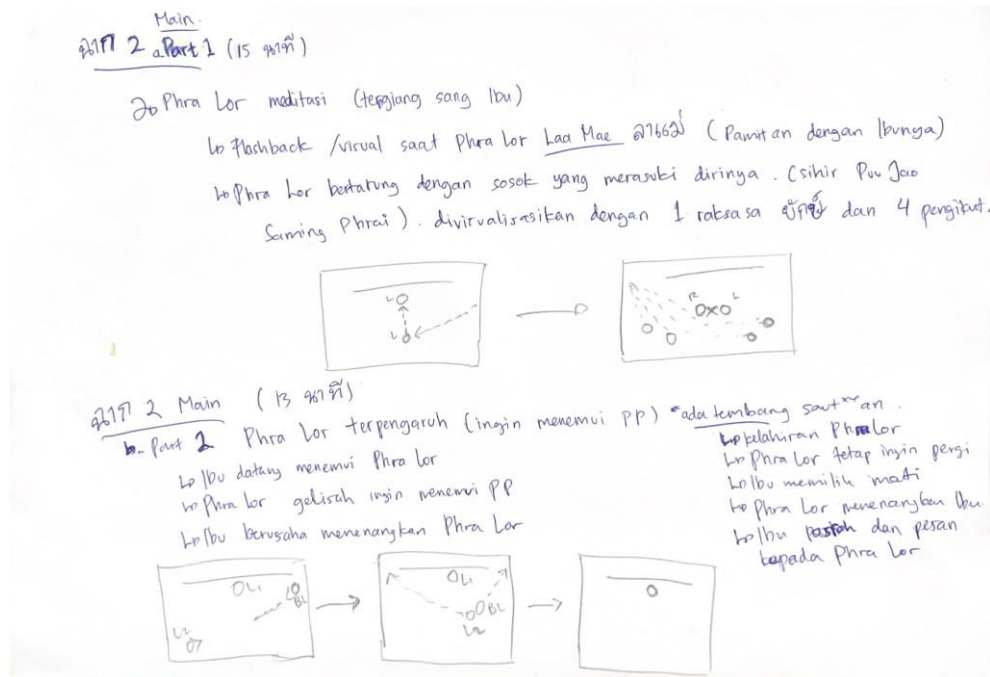 Main
ฉาก 2 a. Part 1 (15 นาที)
Phra Lor meditasi (terngiang sang Ibu)
Flashback / visual saat Phra Lor Laa Mae ลาแม่ (Pamitan dengan Ibunya)
Phra Lor bertarung dengan sosok yang merasuki dirinya. (sihir Puu Jao
Saming Phrai). divisualisasikan dengan 1 raksasa ยักษ์ dan 4 pengikut.
L
L
R L
ฉาก 2 Main (13 นาที)
b. Part 2 Phra Lor terpengaruh (ingin menemui PP) *ada tembang saut"an.
Ibu datang menemui Phra Lor
Phra Lor gelisah ingin menemui PP
Ibu berusaha menenangkan Phra Lor
kelahiran Phra Lor
Phra Lor tetap ingin pergi
Ibu memilih mati
Phra Lor menenangkan Ibu
Ibu pasrah dan pesan
kepada Phra Lor
L1
BL
L2
L1
BL
L2